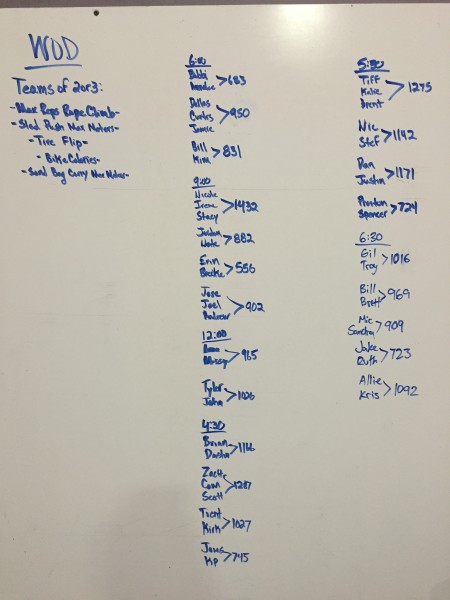 WOD
Teams of 2 or 3:
-Max Reps Rope Climb-
-Sled Push Max Meters-
-Tire Flip-
-Bike Calories-
-Sand Bag Carry Max Meters-
6:00
Bobbi
>683
Dallas
Curtis >950
Jamie
Bill
Kim >831
9:00
Nicole
Irene >1432
Stacy
Jordan
>882
Erin
Brooke >556
Jose
Joel >902
Andrew
12:00
Missy >965
Tyler
John >1026
4:30
Brian
Dasha >1116
Zach
Cam >1287
Scott
Trent
Kirk >1027
KP >745
5:30
Tiff
Katie >1275
Brent
Nic
Stef >1142
Dan
Justin >1171
Preston
Spencer >724
6:30
Gil
Troy >1016
Bill
Brett >969
Mic
Sandra >909
Jake
Ruth >723
Allie
Kris >1092